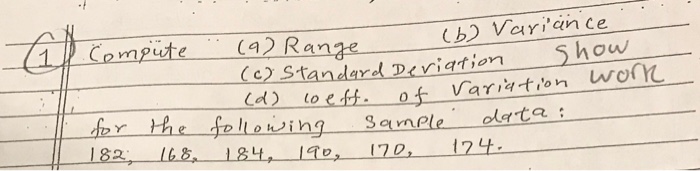 1 Compute (a) Range (b) Variance
(c) Standard Deviation Show
(d) coeff. of Variation work
for the following sample data:
182, 168, 184, 190, 170, 174.